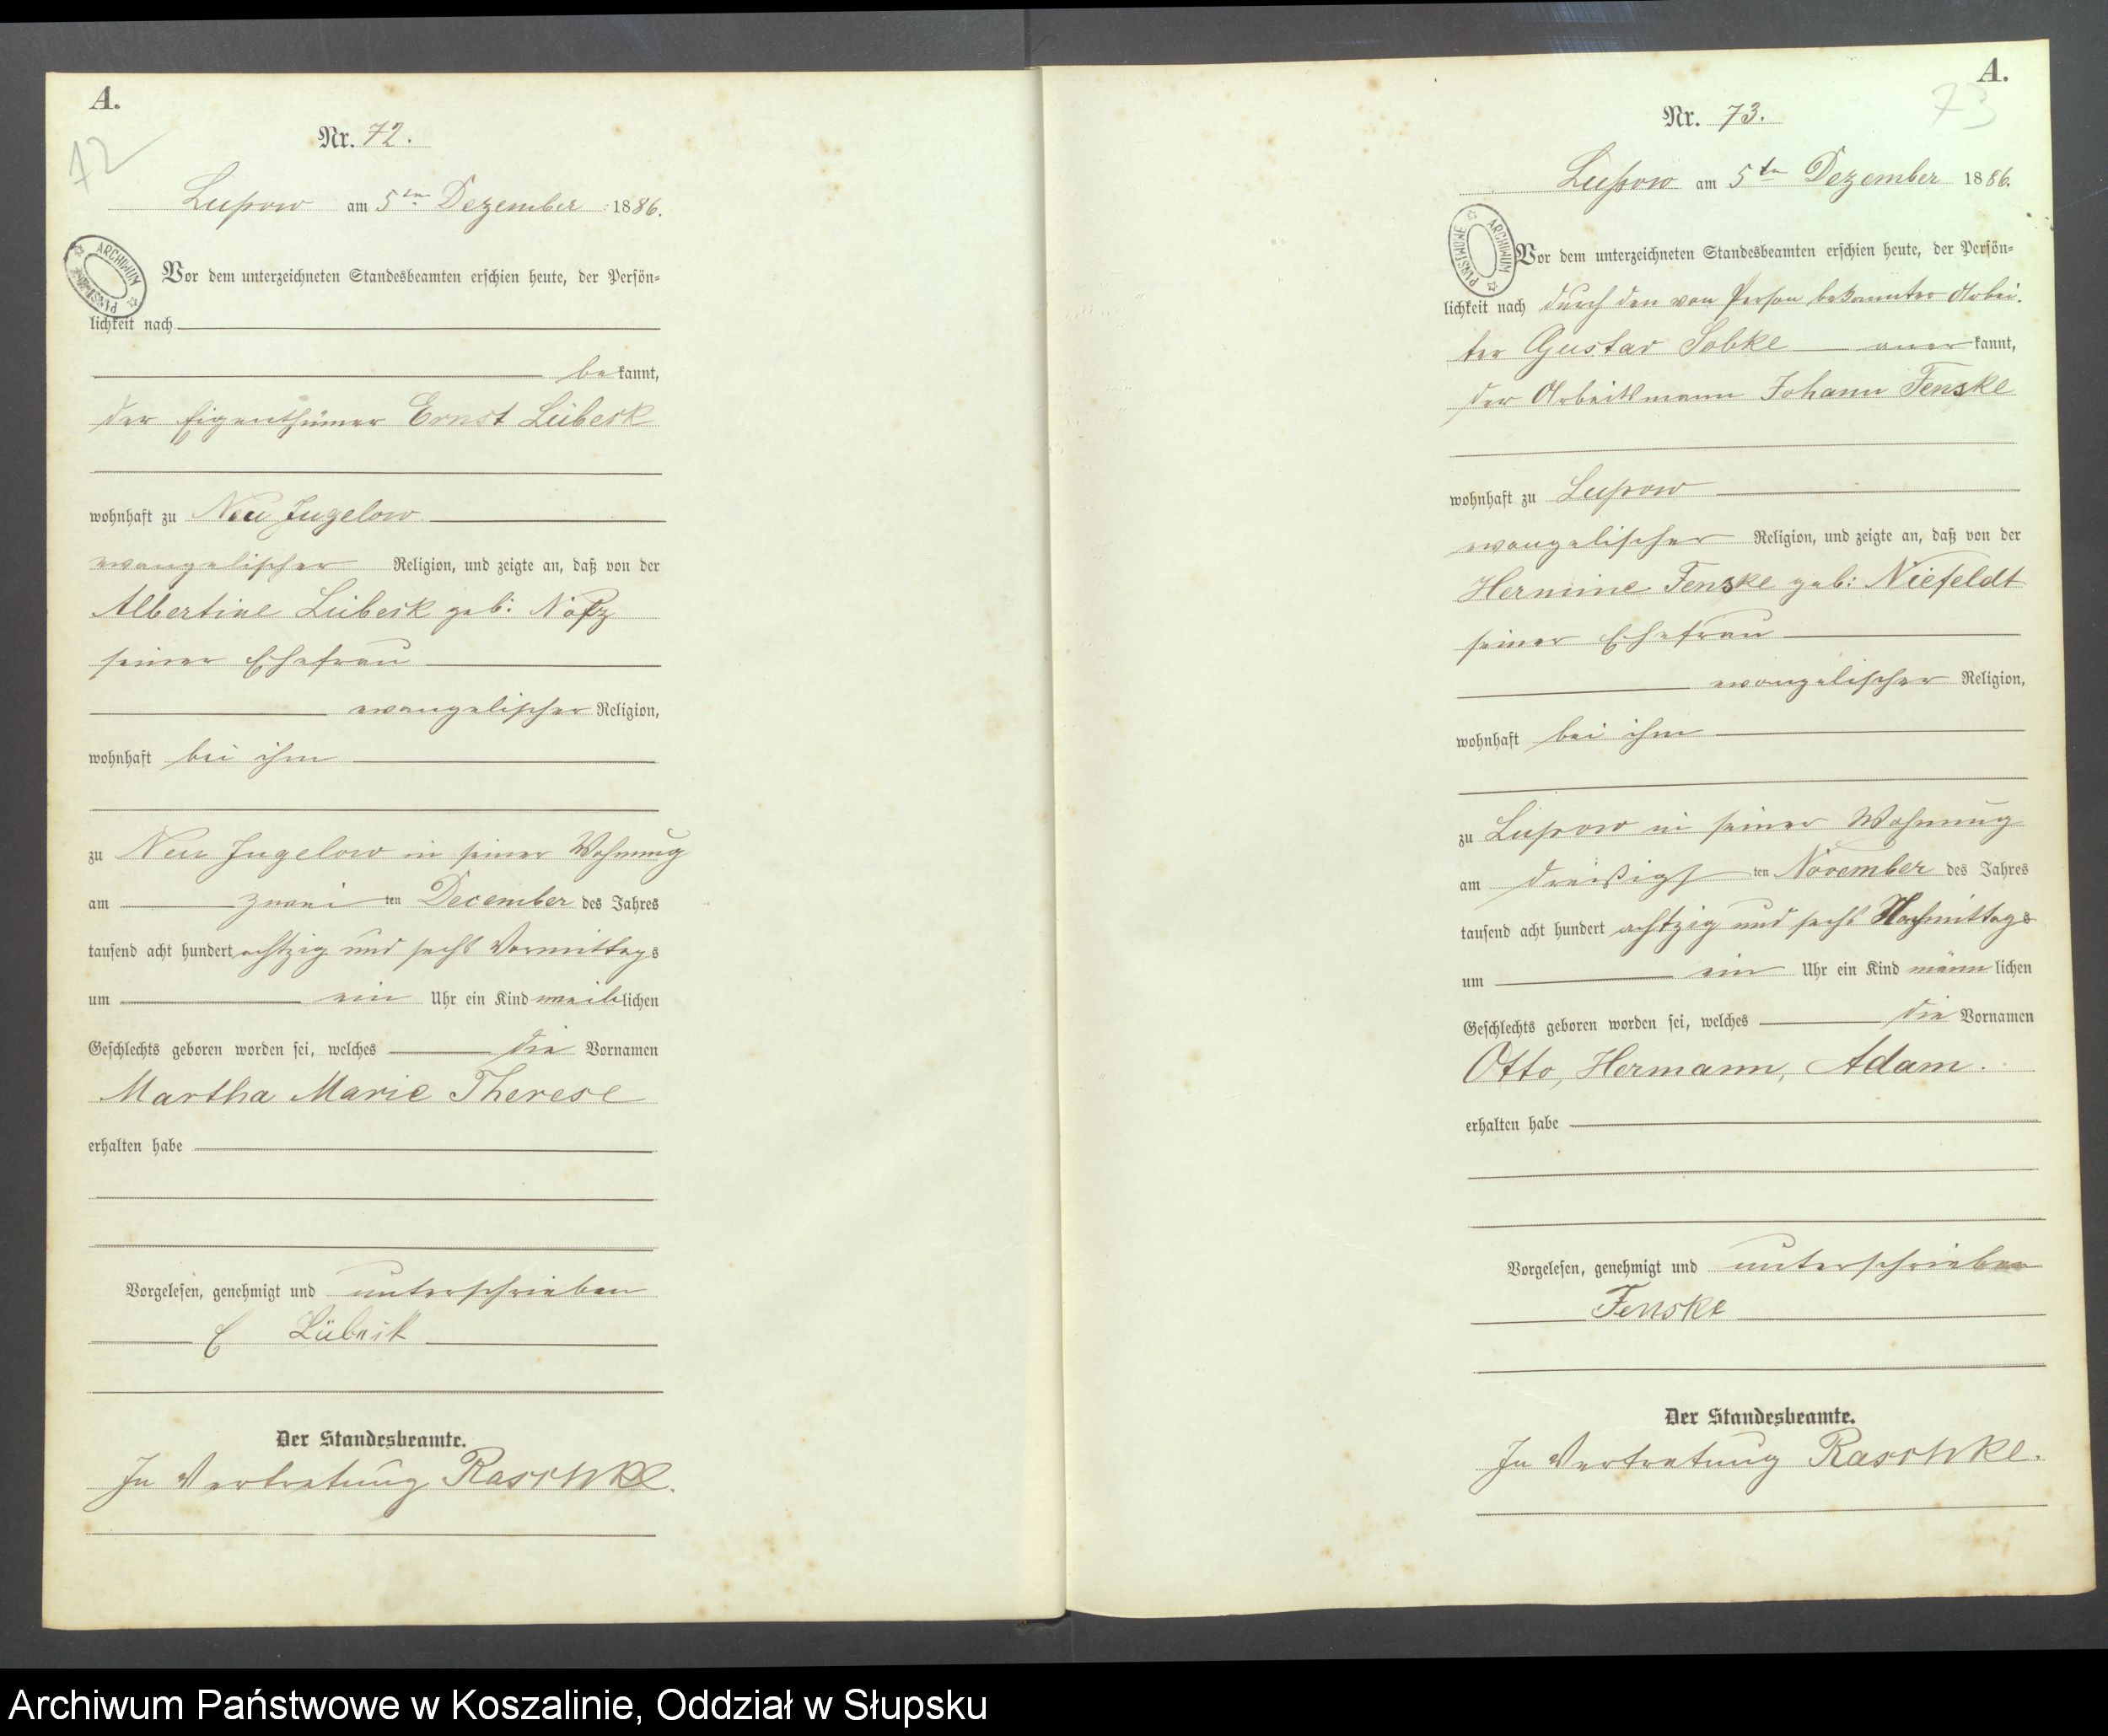 A.
72
Nr. 72.
Lupow am 5ten Dezember 1886.
ARCHIWUM PAŃSTWOWE
Vor dem unterzeichneten Standesbeamten erschien heute, der Persön-
lichkeit nach
bekannt,
der Eigenthümer Ernst Lübeck
wohnhaft zu Neu Jugelow
evangelischer Religion, und zeigte an, daß von der
Albertine Lübeck geb:
seiner Ehefrau
evangelischer Religion,
wohnhaft bei ihm
zu Neu Jugelow in seiner Wohnung
am zwei ten December des Jahres
tausend acht hundert achtzig und sechs Vormittags
um ein Uhr ein Kind weiblichen
Geschlechts geboren worden sei, welches die Vornamen
Martha Marie Therese
erhalten habe
Vorgelesen, genehmigt und unterschrieben
E Lübeck
Der Standesbeamte.
In Vertretung Raschke.
A.
73
Nr. 73.
Lupow am 5ten Dezember 1886.
ARCHIWUM PAŃSTWOWE
Vor dem unterzeichneten Standesbeamten erschien heute, der Persön-
lichkeit nach durch den von Person bekannten Arbei-
ter Gustav Sobke anerkannt,
der Arbeitsmann Johann Fenske
wohnhaft zu Lupow
evangelischer Religion, und zeigte an, daß von der
Hermine Fenske geb: Niefeldt
seiner Ehefrau
evangelischer Religion,
wohnhaft bei ihm
zu Lupow in seiner Wohnung
am dreißigs ten November des Jahres
tausend acht hundert achtzig und sechs Nachmittags
um ein Uhr ein Kind männlichen
Geschlechts geboren worden sei, welches die Vornamen
Otto, Hermann, Adam.
erhalten habe
Vorgelesen, genehmigt und unterschrieben
Fenske
Der Standesbeamte.
In Vertretung Raschke.
Archiwum Państwowe w Koszalinie, Oddział w Słupsku